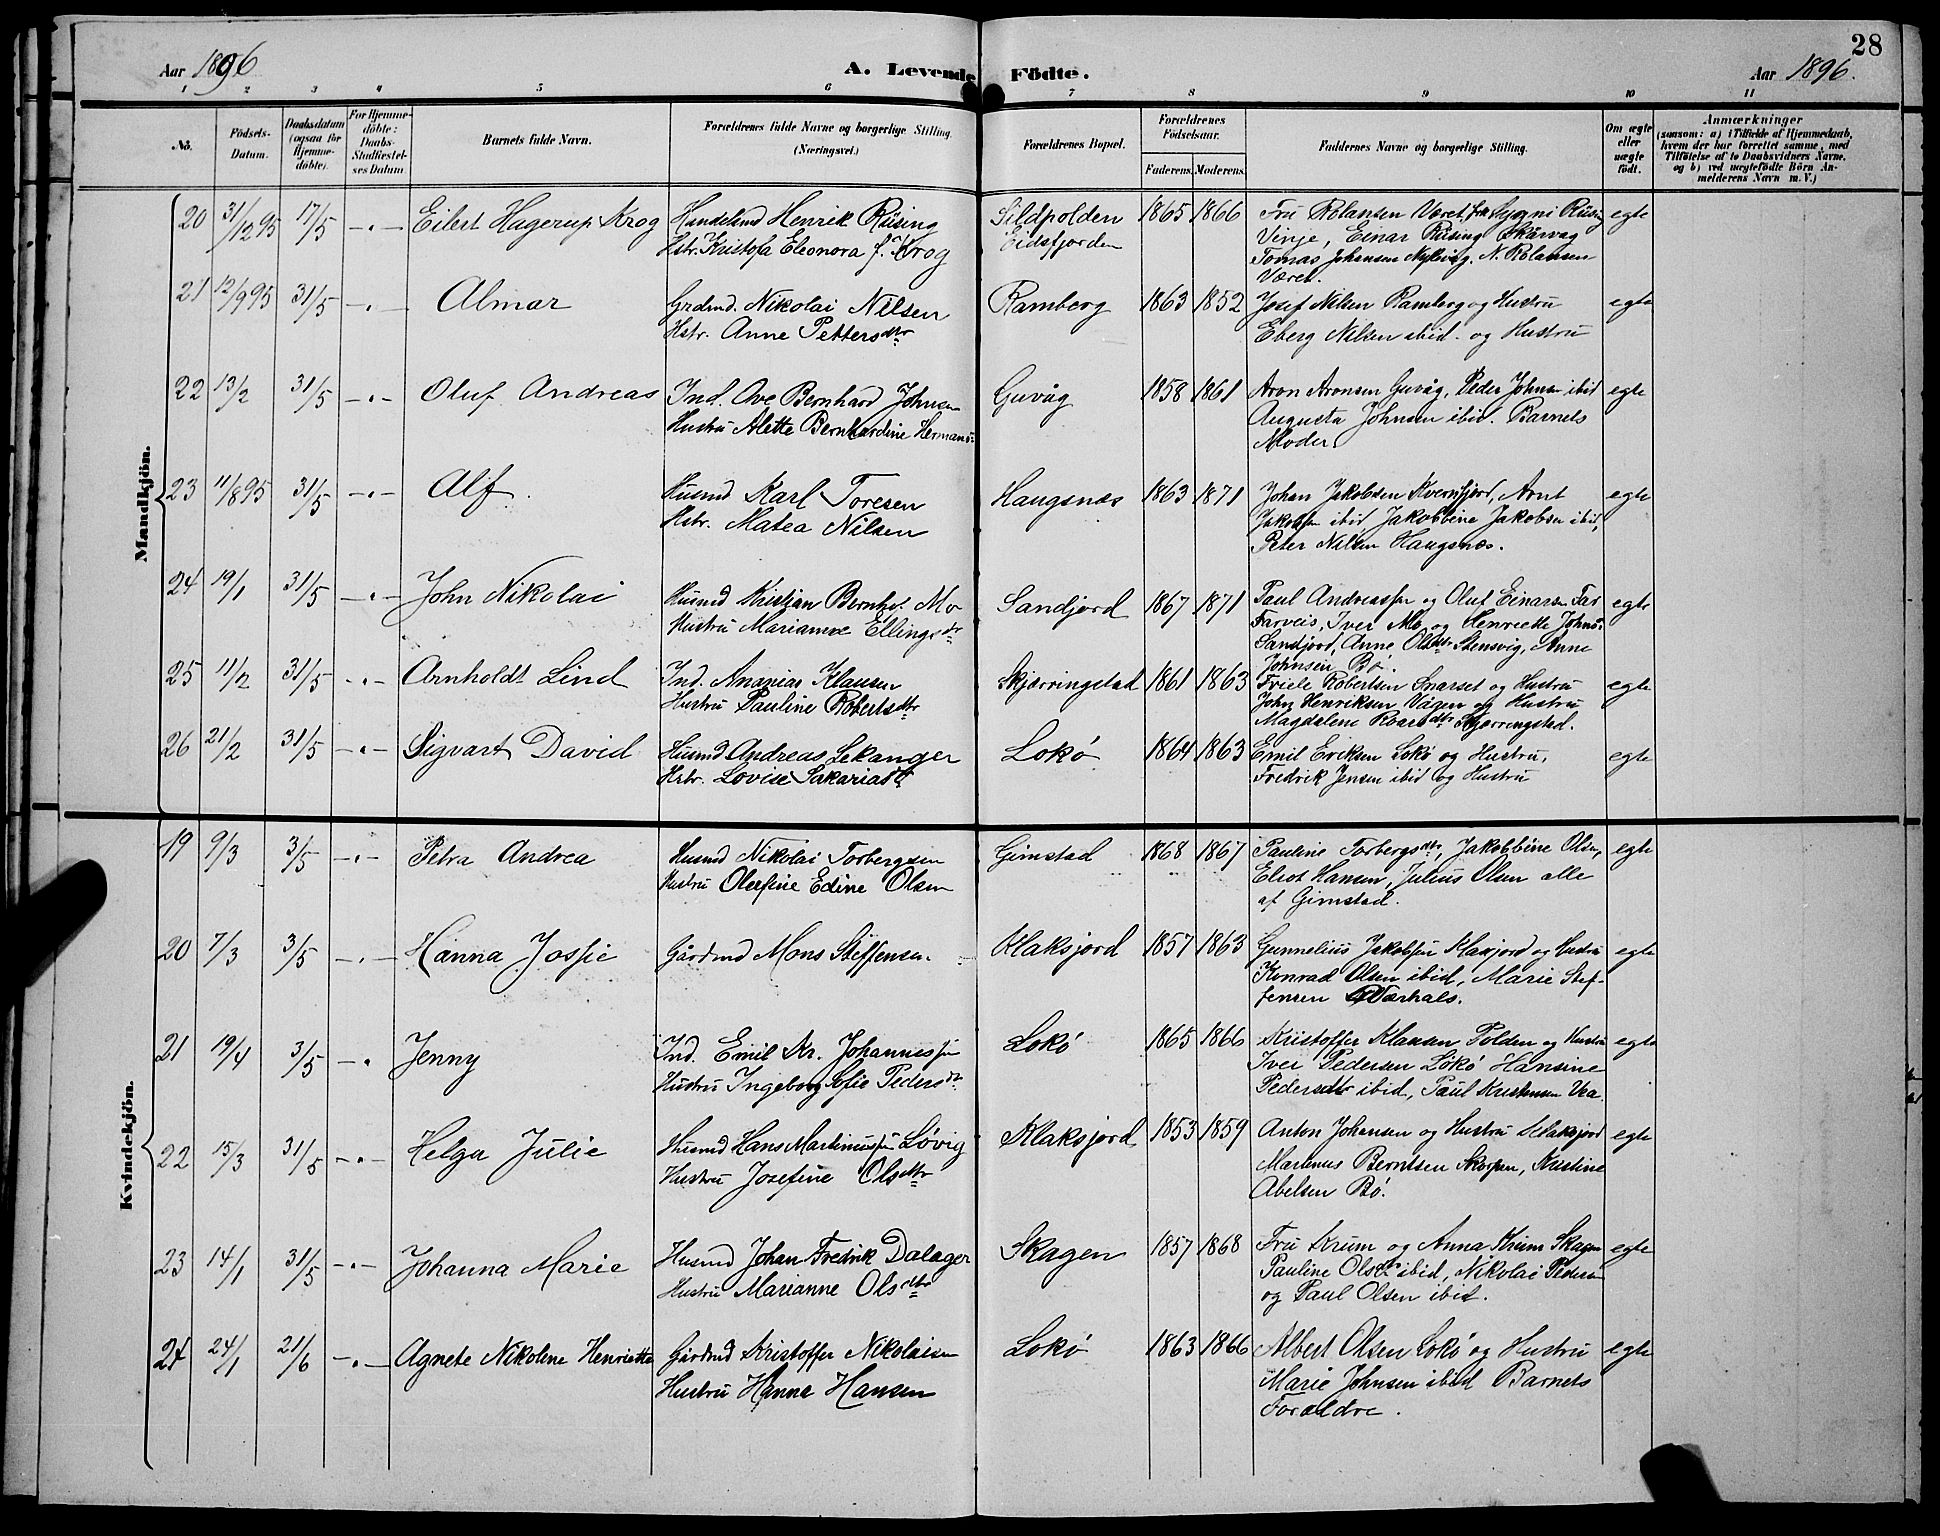 28
Aar 1896 A. Levende Födte. Aar 1896.
1 2 3 4 5 6 7 8 9 10 11
No. Födsels-Datum. Daabsdatum (ogsaa for Hjemmedöbte). For Hjemmedöbte: Daabs-Stadfæstelses Datum. Barnets fulde Navn. Forældrenes fulde Navne og borgerlige Stilling. (Næringsvei.) Forældrenes Bopæl. Forældrenes Födselsaar. Faderens. Moderens. Faddernes Navne og borgerlige Stilling. Om ægte eller uægte födt. Anmærkninger (saasom: a) i Tilfælde af Hjemmedaab, hvem der har forrettet samme, med Tilföielse af to Daabsvidners Navne, og b) ved uægtefödte Börn Anmelderens Navn m. V.)
Mandkjön.
20 31/12 95 17/5 -"- Eilert Hagerup Krog Handelsmd Henrik Rüsing Sildpolden 1865 1866 Fru Rolansen Været, frk Sygni Rüsing egte
Hstr. Kristofa Eleonora f. Krog Eidsfjorden Vinje, Einar Rüsing Skårvåg
Tomas Johansen Nykving. N. Rolansen
Været.
21 12/9 95 31/5 -"- Almar Grdmd. Nikolai Nilsen Ramberg 1863 1852 Josef Nilsen Ramberg og Hustru egte
Hstr. Anne Pettersdtr Eberg Nilsen ibid. og Hustru
22 13/2 31/5 -"- Oluf Andreas Ind. Ove Bernhard Johnsen Guvåg 1858 1861 Aron Aronsen Guvåg, Peder Johnsen ibid egte
Hustru Alette Bernhardine Hermans- Augusta Johnsen ibid. Barnets
Moder.
23 11/8 95 31/5 -"- Alf. Husmd Karl Toresen Haugsnæs 1863 1871 Johan Jakobsen Kvernfjord, Arnt egte
Hstr. Matea Nilsen Jakobsen ibid, Jakobbine Jakobsen ibid,
Peter Nilsen Haugsnæs.
24 19/1 31/5 -"- John Nikolai Husmd Kristjan Bernh. Mo Sandjord 1867 1871 Paul Andreassen og Oluf Einarsen Far egte
Hustru Marianne Ellingsdtr Farveis, Iver Mo og Henriette Johns-
Sandjord, Anne Olsdtr Stensvig, Anne
Johnsen Bø.
25 11/2 31/5 -"- Arnholdt Lind Ind. Ananias Klausen Skjærringstad 1861 1863 Friele Robertsen Snarset og Hustru egte
Hustru Pauline Robertsdtr John Henriksen Vågen og Hustru
Magdalene Roarsdtr Skjærringstad.
26 21/2 31/5 -"- Sigvart David Husmd Andreas Lekanger Lokø 1864 1863 Emil Eriksen Lokø og Hustru, egte
Hstr. Lovise Sakariasdtr Fredrik Jensen ibid og Hustru
Kvindekjön.
19 9/3 3/5 -"- Petra Andrea Husmd Nikolai Torbergsen Gimstad 1868 1867 Pauline Torbergsdtr, Jakobbine Olsen, egte
Hustru Olefine Edine Olsen Eliot Hansen, Julius Olsen alle
af Gimstad.
20 7/3 3/5 -"- Hanna Jossie Gårdmd Mons Steffensen. Klaksjord 1857 1863 Gunnelius Jakobsen Klaxjord og Hustru egte
Konrad Olsen ibid, Marie Stef-
fensen Værhals.
21 19/4 3/5 -" Jenny Ind. Emil Kr. Johannessen Lokø 1865 1866 Kristoffer Klausen Polden og Hustru egte
Hustru Ingeborg Sofie Pedersdtr Iver Pedersen Lokø Hansine
Pedersdtr ibid, Paul Kristensen Vea
22 15/3 31/5 -"- Helga Julie Husmd Hans Martinussen Løvig Klaksjord 1853 1859 Anton Johansen og Hustru Klaksjord egte
Hustru Josefine Olsdtr Martinus Berntsen Skorpen, Kristine
Abelsen Bø.
23 14/1 31/5 -"- Johanna Marie Husmd Johan Fredrik Dalager Skagen 1857 1868 Fru Krum og Anna Krum Skagen egte
Hustru Marianne Olsdtr Pauline Olsdtr ibid, Nikolai Pedersen
og Paul Olsen ibid.
24 24/1 21/6 -"- Agnete Nikoline Henriette Gårdmd Kristoffer Nikolaisen Lokø 1863 1866 Albert Olsen Lokø og Hustru egte
Hustru Hanna Hansen Marie Johnsen ibid Barnets
Forældre.